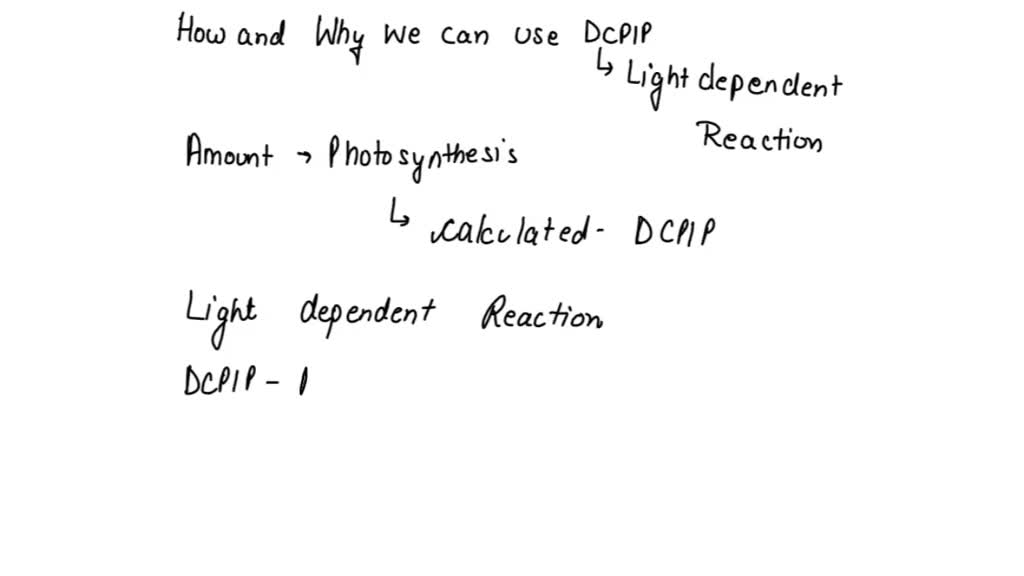 How and Why we can use DCPIP
↳ Light dependent
Reaction
Amount → Photosynthesis
↳ calculated - DCPIP
Light dependent Reaction
DCPIP -